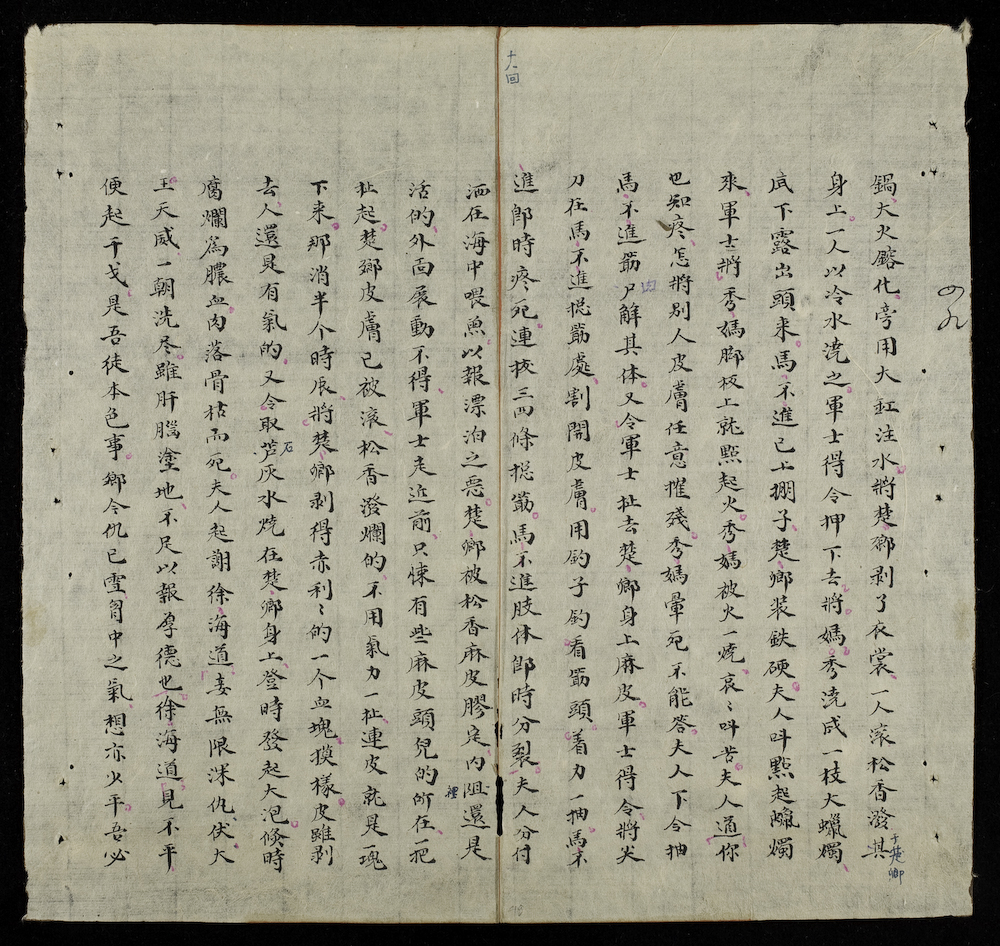 十八回
鍋大火鎔化旁用大缸注水將楚鄉剥了衣裳一人滚松香潑其
于楚卿
身上一人以冷水澆之軍士得令押下去將媽秀澆成一枝大蠟燭
底下露出頭来馬不進已上搠子楚鄉装鉄硬夫人呌㸃起蠟燭
来軍士將秀媽脚板上就㸃起火秀媽被火一燒哀〻呌苦夫人道你
也知疼怎將别人皮膚任意摧殘秀媽暈死不能答夫人下令抽
馬不進筋尸解其体又令軍士扯去楚鄉身上麻皮軍士得令將尖
肉
刀在馬不進揔筋處割開皮膚用鈎子鈎看筋頭着力一抽馬不
進郎時疼死連抜三四條揔筋馬不進肢体郎時分裂夫人分付
洒在海中喂魚以報漂泊之惡楚鄉被松香麻皮膠定内阻還是
裡
活的外面展動不得軍士走近前只悚有些麻皮頭兒的所在一把
扯起楚鄉皮膚已被滚松香潑爛的不用氣力一扯連皮就是一塊
下来那消半个時辰將楚鄉剥得赤利〻的一个血塊摸樣皮雖剥
去人還是有氣的又令取芦灰水燒在楚鄉身上登時發起大泡倐時
石
腐爛為膿血肉落骨枯而死夫人起謝徐海道妾無限深仇伏大
王天威一朝洗尽雖肝腦塗地不足以報厚德也徐海道見不平
便起干戈是吾徒本色事鄉今仇已雪胷中之氣想亦少平吾必